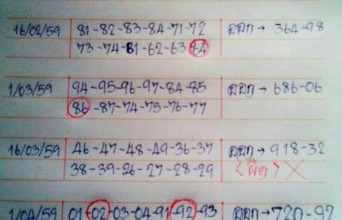 16/02/59 81-82-83-84-71-72 ออก→ 364-98
73-74-61-62-63-64
1/03/59 94-95-96-97-84-85 ออก→ 686-06
86-87-74-75-76-77
16/03/59 46-47-48-49-36-37 ออก→ 918-32
38-39-26-27-28-29 <ผิด> X
1/04/59 01-02-03-04-91-92-93 ออก→ 720-92